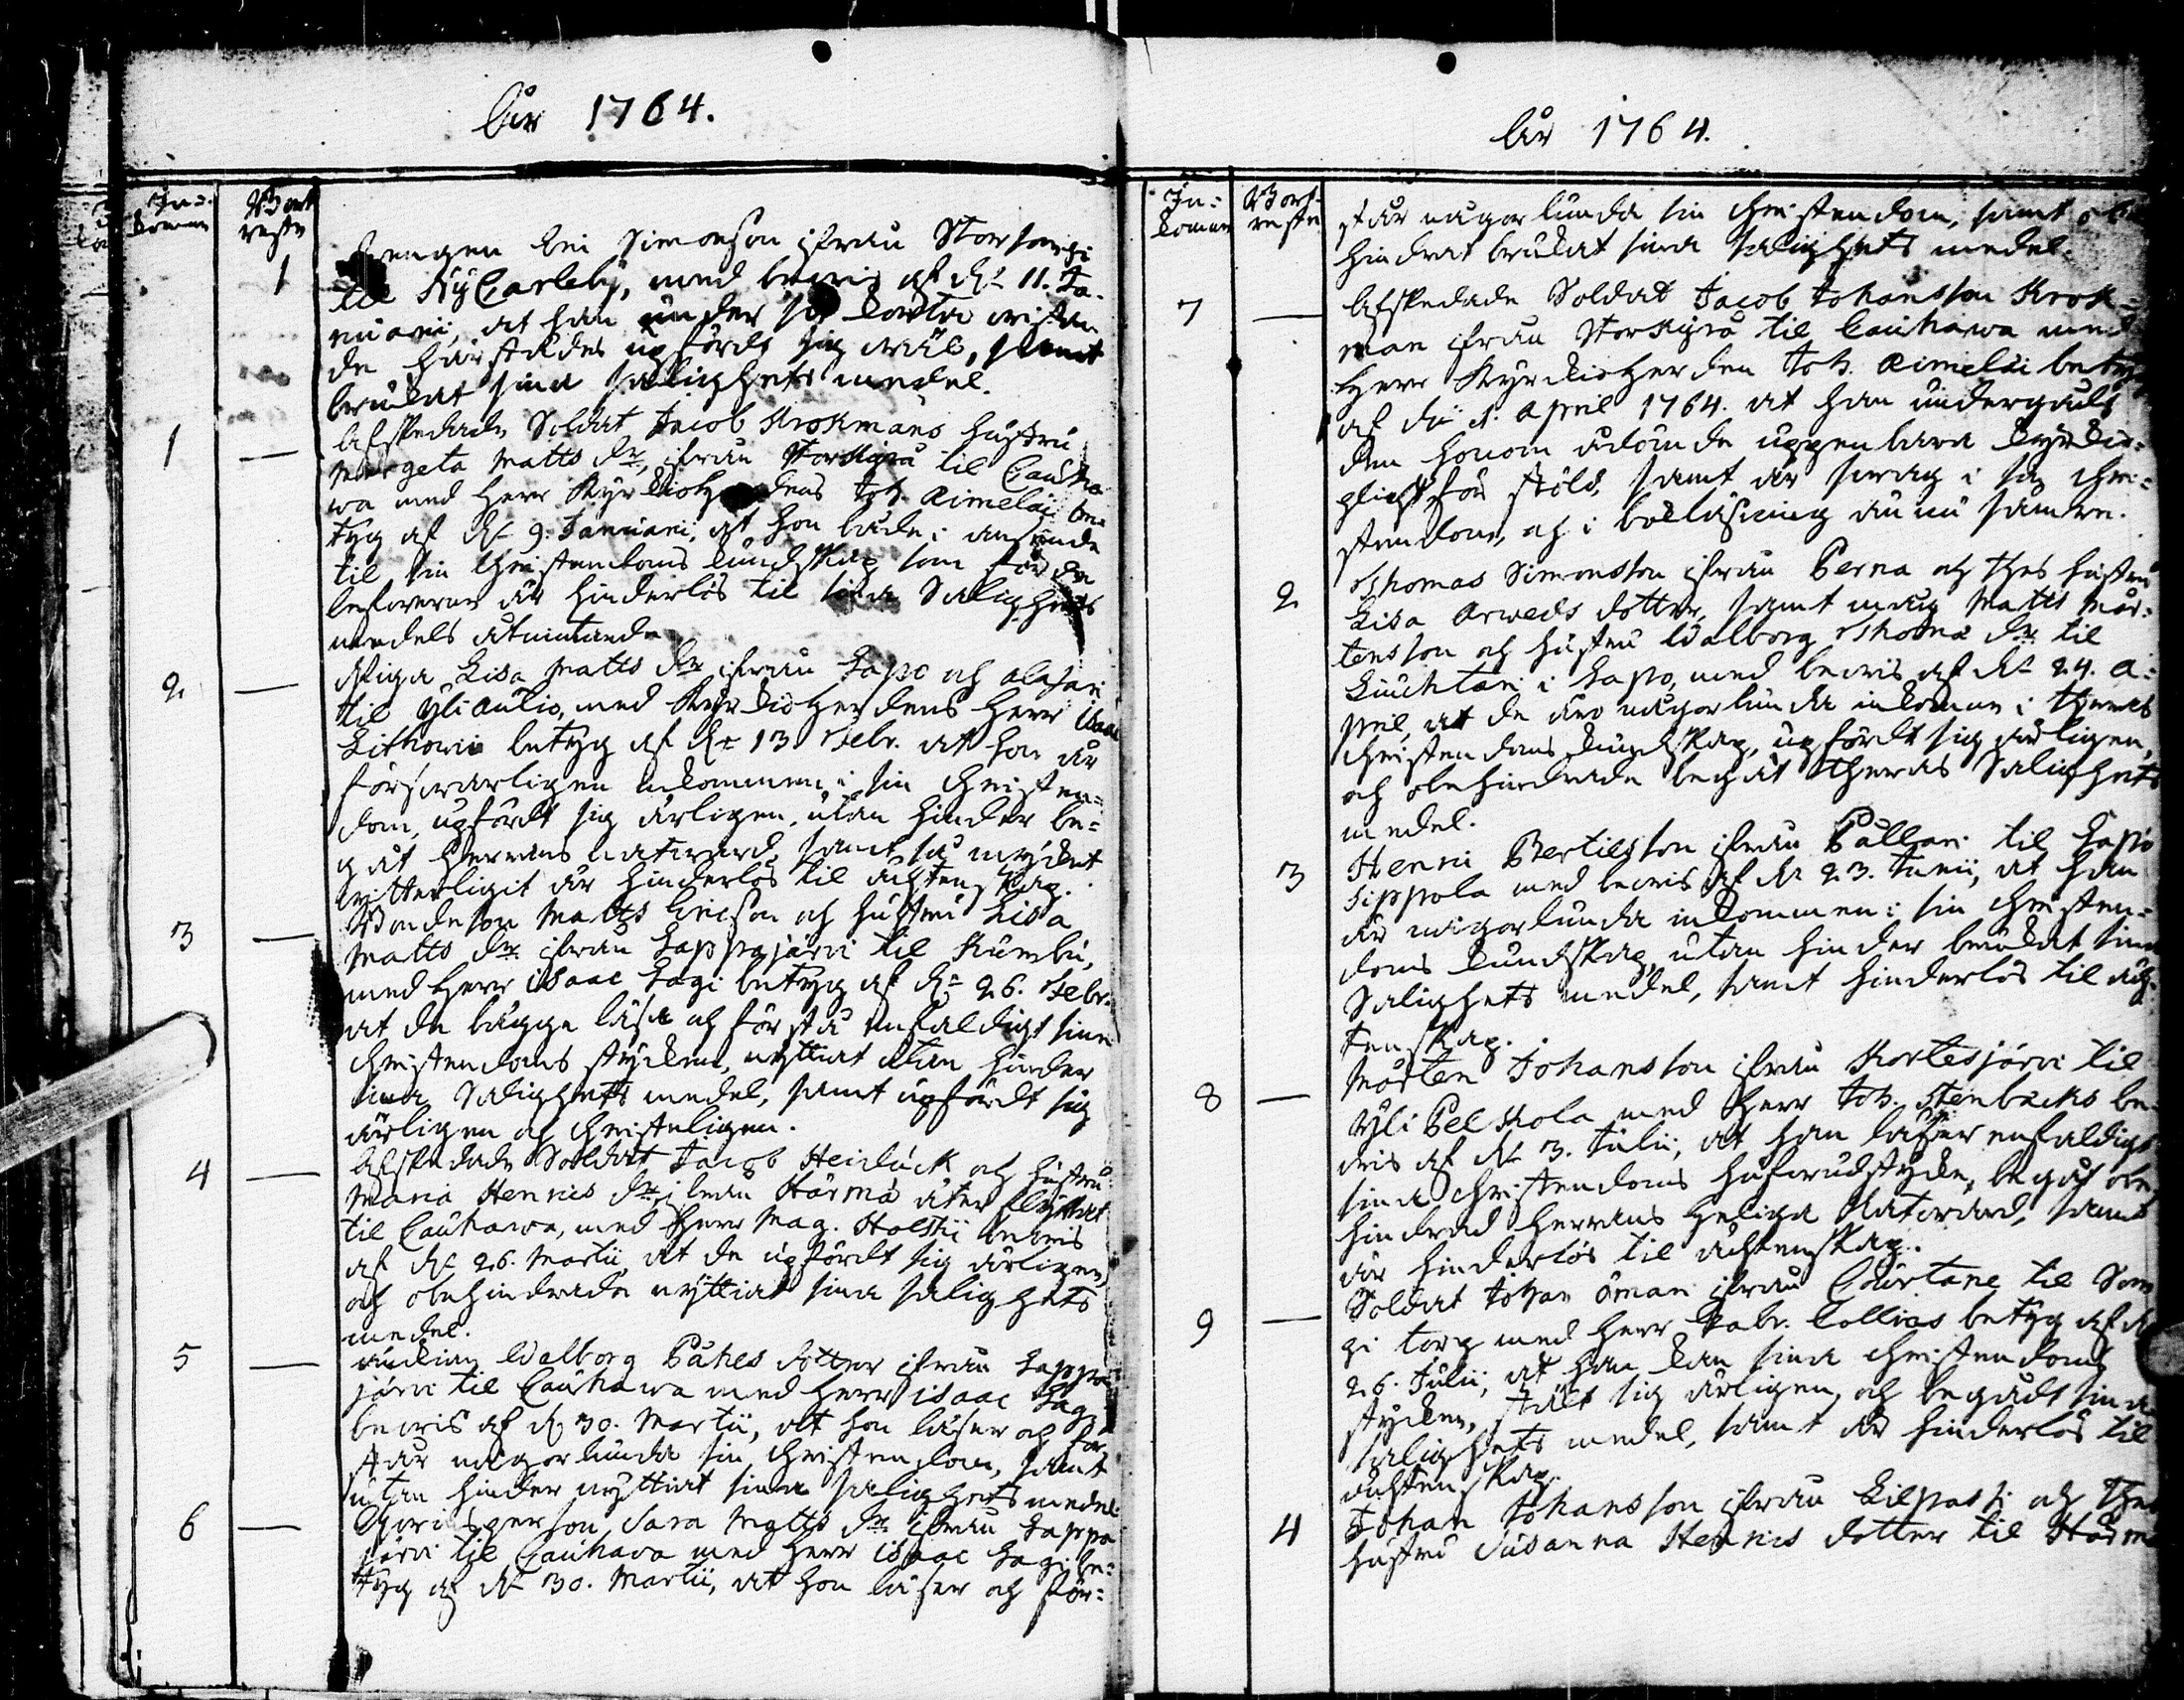 År 1764.
In-
komne
Bort
reste
1
Drengen Eric Simonsson ifrån Storsomsi
til Ny Carleby, med bewis af d. 11. Ja-
nuarii, at han under så korta wistan-
de härstädes upfördt sig wäl, samt
brukat sina salighets medel.
1 —
Afskedade Soldat Jacob Krokmans hustru
Margeta Matts dr, ifrån Storkyrå til Cauha-
wa med Herr Kyrckioherdens Joh. Aimelæi be-
tyg af d. 9. Januarii, at hon både i anseende
til sin Christendoms kundskap som
lefwerne är hinderlös til sina Salighets
medels åtniutande
2 —
Pigan Lisa Matts dr ifrån Lapo och Alajär
til Yliaulio, med Kyrckioherdens Herr Isaac
Lithowii betyg af d. 13 Febr. at hon är
förswarligen inkommen i sin Christen-
dom, upfördt sig ärligen, utan hinder be-
gåt Herrans natward, samt så mycket
witterligit är hinderlös til äktenskap.
3 —
Bondeson Matts Ericson och hustru Lisa
Matts dr ifrån Lappajärvi til Kumbu,
med Herr Isaac Lagi betyg af d. 26. Febr.
at de bägge läsa och förstå enfaldigt sina
Christendoms stycken, nyttiat utan hinder
sina Salighets medel, samt upfördt sig
ärligen och Christeligen.
4 —
Afskedade Soldat Jacob Heiduck och hustru
Maria Henrics dr ifrån Härmä åter flyttat
til Cauhawa, med Herr Mag. Holstii bewis
af d. 26. Martii, at de upfördt sig ärligen
och obehindrade nyttiat sina salighets
medel.
5 —
Änckian Walborg Påhls dotter ifrån Lappa-
järvi til Cauhawa med Herr Isaac Lagi
bewis af d. 30. Martii, at hon läser och för-
står någorlunda sin Christendom, samt
utan hinder nyttiat sina salighets medel.
6 —
Qwinsperson Sara Matts dr ifrån Lappa
järvi til Cauhava med Herr Isaac Lagi be-
tyg af d. 30. Martii, at hon läser och för-
År 1764.
In-
komne
Bort-
reste
står någorlunda sin Christendom, samt obe
hindrat brukat sina salighets medel.
7 —
Afskedade Soldat Jacob Johansson Krok-
man ifrån Storkyrå til Cauhawa med
Herr Kyrckioherden Joh. Aimelæi betyg
af d. 1. April 1764. at han undergådt
den honom ådömde uppenbara kyrckio-
plicht för stöld, samt är swag i sin Chri-
stendom, och i bokläsning ännu sämre.
2
Thomas Simonsson ifrån Perna och thes hustru
Lisa Arweds dotter, samt måg Matts Mår-
tensson och hustru Walborg Thomæ dr til
Liuhtari i Lapo, med bewis af d. 24. A-
pril, at de äro någorlunda inkomne i theras
Christendoms kundskap, upfördt sig ärligen,
och obehindrade begåt theras Salighets
medel.
3
Henric Bertilsson ifrån Pallari til Lapo
Sippola med bewis af d. 23. Junii, at han
är någorlunda inkommen i sin Christen-
doms kundskap, utan hinder brukat sina
Salighets medel, samt hinderlös til äch-
tenskap.
8 —
Mårten Johansson ifrån Kortesjärvi til
Yli Pelkola med Herr Joh. Stenbäcks be-
wis af d. 3. Julii, at han läser enfaldigt
sina Christendoms hufwudstycke, begåt obe
hindrad Herrans Heliga Natward, samt
är hinderlös til ächtenskap.
9 —
Soldat Johan Öman ifrån Cuortane til Som
gi torp med Herr Gabr. Collins betyg af d.
26. Julii, at han kan sina Christendoms
stycken, stält sig ärligen, och begådt sina
salighets medel, samt är hinderlös til
ächtenskap.
4
Johan Johansson ifrån Lilpassi och thes
hustru Susanna Henrics dotter til Härmä